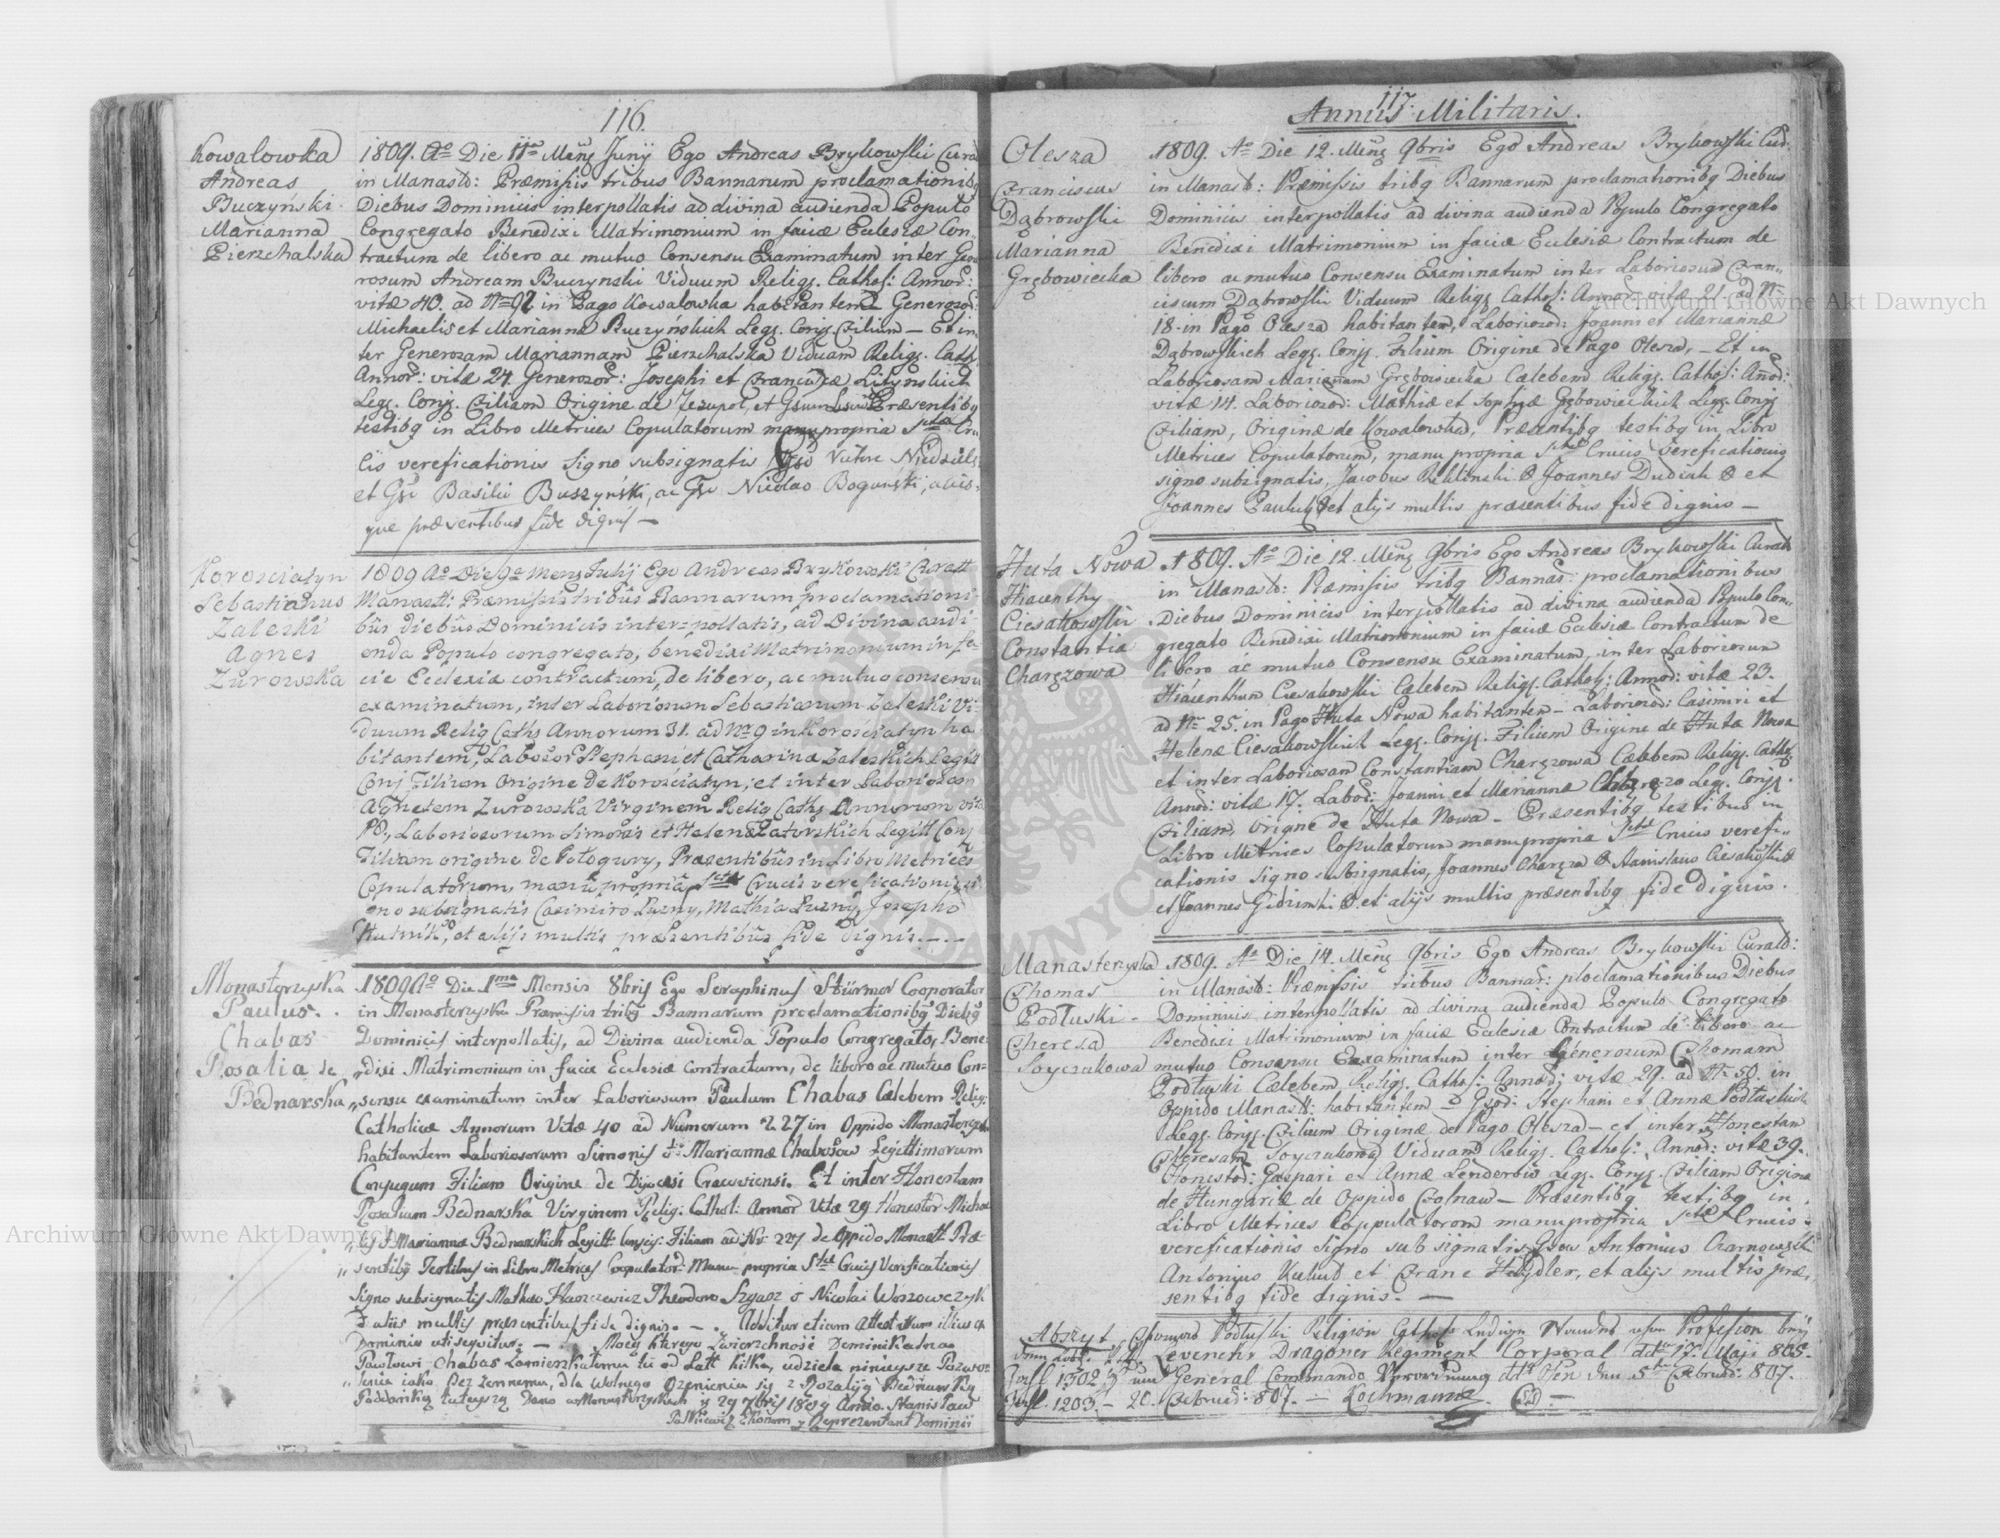 116.
Kowalowka
Andreas
Buczyński
Marianna
Pierzchalska
1809. Ao Die 11ma Menẽ Junÿ Ego Andreas Brykowski Cura
in Manastõ: Præmissis tribus Bannarum proclamationibq
Diebus Dominicis interpollatis ad divina audienda Populo
Congregato Benedixi Matrimonium in faciæ Eclesiæ Con-
tractum de libero ac mutuo Consensu Examinatum inter Gene
rosum Andream Buczynski Viduum Religs. Cathol: Annor:
vitæ 40. ad Nrm 92 in Pago Kowalowka habitantem Generosor:
Michaelis et Marianna Buczyńskich Legs. Conjs. Filium — Et in
ter Generosam Mariannam Pierzchalska Viduam Religs. Cath
Annor: vitæ 24. Generosor: Josephi et Franciscæ Lityńskich
Legs. Conjs. Filiam Origine de Jezupol, et Præsentibq
testibq in Libro Metrices Copulatorum manu propria Sctæ Cru
cis vereficationis Signo subsignatis Victore Niedziels
et Gso Basilio Buszyński, ac Gso Nicolao Bogański, alijs-
que præsentibus fide dignis —
Korosciatyn
Sebastianus
Zaleski
Agnes
Zurowska
1809 Ao Die 9a Mens Julij Ego Andreas Brykowski Curatt
Manastt: Præmissis tribus Bannarum proclamationi-
bus diebus Dominicis inter-pollatis, ad Divina audi-
enda Populo congregato, benedixi Matrimonium in fa-
cie Ecclesiæ contractum, de libero, ac mutuo consensu
examinatum, inter Laboriosum Sebastianum Zaleski Vi-
duum Relig Caths Annorum 31. ad Nr 9 in Korościatyn ha
bitantem, Laborior Stephani et Catharina Zaleskich Legitt
Conj Filium Origine de Korościatyn, et inter Laboriosam
Agnetem Zurowska Virginem Relig Caths Annorum vitæ
18., Laboriosorum Simonis et Helenæ Zatorskich Legitt Conj
Filiam origine de Potogury, Præsentibus in Libro Metrices
Copulatorum, manu propria Sctæ Crucis vereficationis si
gno subsignatis Casimiro Luzny, Mathia Luzny, Josepho
Hutnik, et alijs multis præsentibus fide dignis. — . —
Monasterzyska
Paulus.
Chabas
Rosalia de
Bednarska
1809 Ao Die 1ma Mensis 8bris Ego Seraphinus Stürmer Cooperator
in Monasterzyska Præmissis tribq Bannarum proclamationibq Diebq
Dominicis interpollatis, ad Divina audienda Populo Congregato, Bene
dixi Matrimonium in facie Eclesiæ contractum, de libero ac mutuo Con-
sensu examinatum inter Laboriosum Paulum Chabas Cælebem Relig:
Catholicæ Annorum Vitæ 40 ad Numerum 227 in Oppido Monasterzyska
habitantem Laboriosorum Simonis et Mariannæ Chabosow Legittimorum
Conjugum Filium Origine de Dijocesi Cracoviensi. Et inter Honestam
Rosaliam Bednarska Virginem Relig: Cathol: Annor Vitæ 29 Honestor Micha
elis et Mariannæ Bednarskich Legitt: Conjug: Filiam ad Nr: 227 de Oppido Monastt Præ-
sentibq Testibus in Libro Metrices Copulator: Manu propria Sctæ Crucis Verificationis
Signo subsignatis Matheo Haszczewicz Theodoro Szgasz o Nicolai Woszowczyk
Et aliis multis præsentibus fide dignis. — . Additur etiam Attestatum illius a
Dominio uti sequitur. — . Mocą którego Zwierzchność Dominikalna
Pawłowi Chabas Zamieszkałemu tu od Latt kilku, udziela nieniejsze Pozwo-
lenie iako Bezżennemu, dla wolnego Ozenienia się z Rozalyą Bednarską
Poddanką tuteyszą Dano w Monasterzyskach d 29 7bris 1809 Anno Stanisław
Paśkiewicz Ekonom y Reprezentant Dominii
117.
Annus Militaris.
Olesza
Franciscus
Dąbrowski
Marianna
Grębowiecka
1809. Ao Die 12. Menẽ 9bris Ego Andreas Brykowski Cur.
in Manast: Præmissis tribq Bannarum proclamationibq Diebus
Dominicis interpollatis ad divina audienda Populo Congregato
Benedixi Matrimonium in faciæ Eclesiæ Contractum de
libero ac mutuo Consensu Examinatum inter Laboriosum Fran-
ciscum Dąbrowski Viduum Religs Cathol: Annor: vitæ 21. ad Nr
18. in Pago Olesza habitantem, Laborioror: Joanni et Mariannæ
Dąbrowskich Legs. Conjs. Filium Origine de Pago Olesza, — Et in
Laboriosam Mariannam Grębowiecka Cælebem Religs. Cathol: Anor:
vitæ 14. Laborioror: Mathiæ et Sophiæ Grębowieckich Legs. Conjs
Filiam, Originæ de Kowalowka, Præsentibq testibq in Libro
Metrices Copulatorum, manu propria Sctæ Crucis vereficationis
signo subsignatis, Jacobus Reklinski Joannes Dudiak et
Joannes Pauluk et alijs multis præsentibus fide dignis —
Huta Nowa
Hiacenthy
Ciesakowski
Constantia
Charęzowa
1809. Ao Die 12. Menẽ 9bris Ego Andreas Brykowski Curatt
in Manast: Præmissis tribq Bannar: proclamationibus
Diebus Dominicis interpollatis ad divina audienda Populo Con-
gregato Benedixi Matrimonium in faciæ Eclesiæ Contractum de
libero ac mutuo Consensu Examinatum, inter Laboriosum
Hiacenthum Ciesakowski Cælebem Religs. Cathol: Annor: vitæ 23.
ad Nr 25. in Pago Huta Nowa habitantem — Laborioror: Casimiri et
Helenæ Ciesakowskich Legs. Conjs. Filium Origine de Huta Nowa
et inter Laboriosam Constantiam Charęzowa Cælebem Religs. Cathol:
Annor: vitæ 17. Labor: Joanni et Mariannæ Legs. Conjs
Filiam, Origine de Huta Nowa — Præsentibq testibus in
Libro Metrices Copulatorum manu propria Sctæ Crucis verefi-
cationis signo subsignatis, Joannes Charęza Stanislaus Ciesakowski
et Joannes Gidzinski et alijs multis præsentibq fide dignis.
Manasterzyska
Thomas
Podłuski
Theresa
Soyczukowa
1809. Ao Die 14. Menẽ 9bris Ego Andreas Brykowski Curatt:
in Manast: Præmissis tribus Bannar: ploclamationibus Diebus
Dominicis interpollatis ad divina audienda Populo Congregato
Benedixi Matrimonium in faciæ Eclesiæ Contractum de libero ac
mutuo Consensu Examinatum inter Generosum Thomam
Podłuski Cælebem Religs. Cathol: Annor: vitæ 29. ad Nr 50. in
Oppido Manastt: habitantem Gsor: Stephani et Annæ Podłuskich
Legs. Conjs. Filium Originæ de Pago Olesza — et inter Honestam
Theresam Soyczukowa Viduam Religs. Cathol: Annor: vitæ 39.
Honestor: Gaspari et Annæ Lenderow Legs. Conjs. Filiam Origine
de Hungariæ de Oppido Tolnaw — Præsentibq testibq in
Libro Metrices Coppulatorom manu propria Sctæ Crucis
vereficationis Signo sub signatis Gsoo Antonius Czarnowski
Antonius Kukiud et Franc Haydler, et alijs multis præ
sentibq fide dignis. —
Abszyt
Thomas Podłuski Religion Cathol: Ledigen Standes ohne Profession bey
Levenehr Dragoner Regiment Corporal dto 17. Maji 805.
Exff. 1302/3 General Commando Verordnung dto Wien den 5ten Februar: 807.
Exff. 1203. — 20. Februar: 807. — Lochmann
Archiwum Główne Akt Dawnych
Archiwum Główne Akt Dawnych